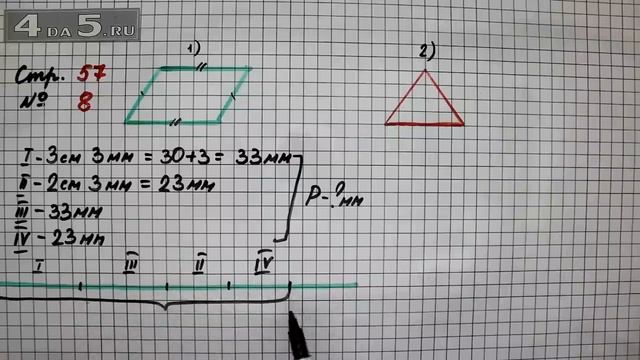 4 DA 5.RU
1)
2)
Стр. 57
№ 8
I - 3см 3мм = 30+3 = 33мм
II - 2см 3мм = 23мм
III - 33мм
IV - 23мм
P - ? мм
I III II IV